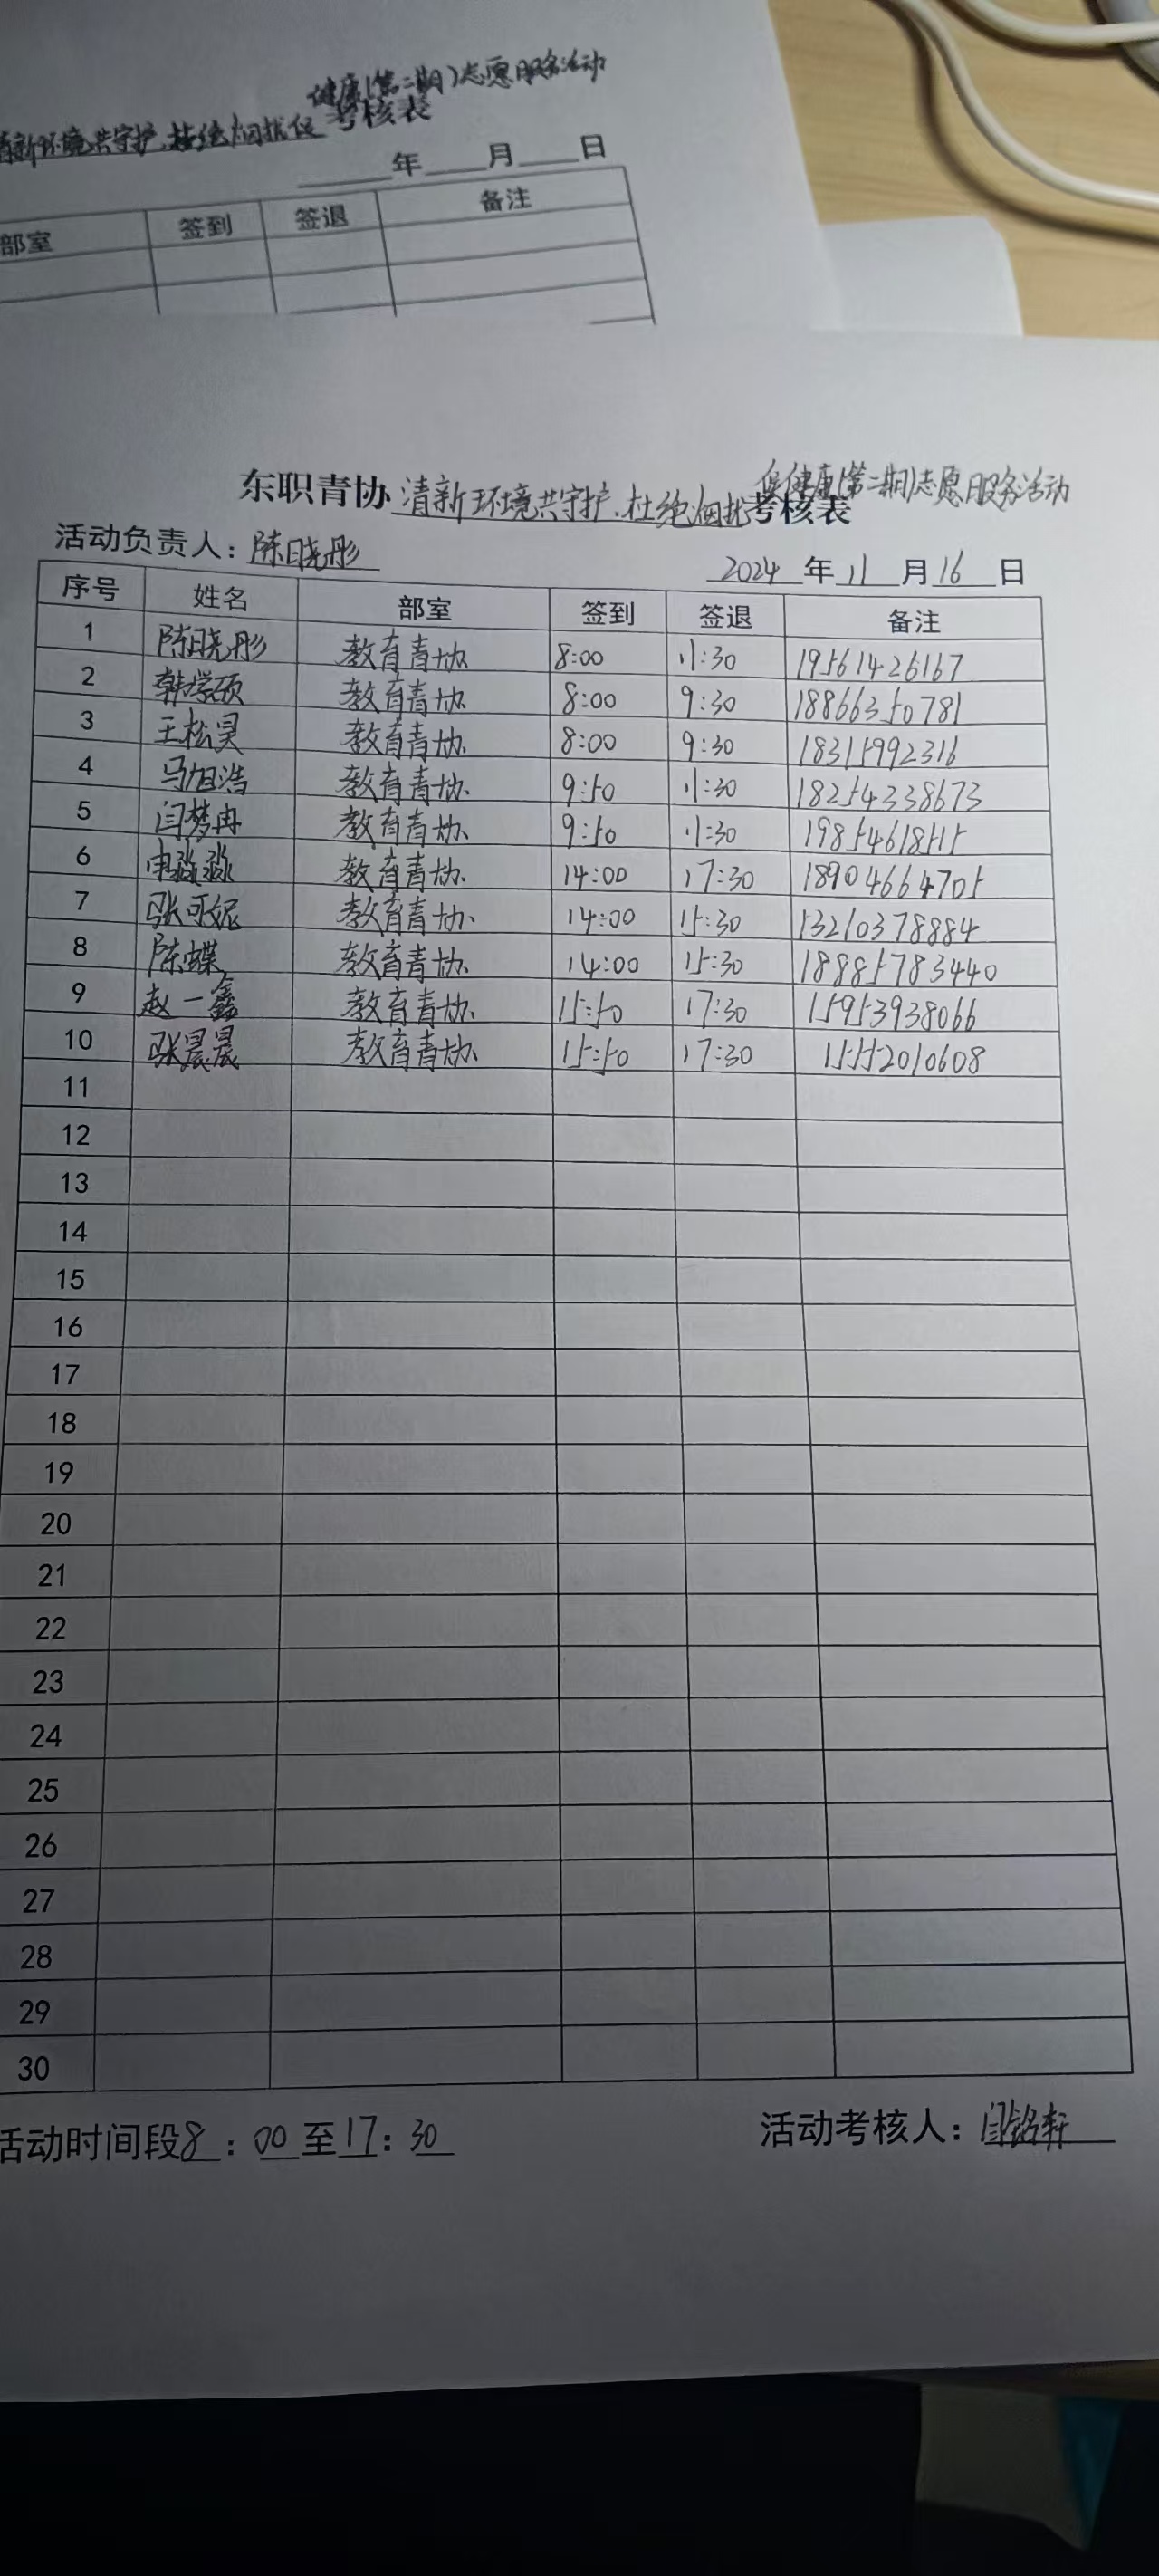 健康(第二期)志愿服务活动
清新环境共守护、杜绝烟扰促 考核表
年 月 日
部室 签到 签退 备注
促健康(第二期)志愿服务活动
东职青协 清新环境共守护、杜绝烟扰 考核表
活动负责人: 陈晓彤
2024 年 11 月 16 日
序号 姓名 部室 签到 签退 备注
1 陈晓彤 教育青协 8:00 11:30 19561426167
2 韩学硕 教育青协 8:00 9:30 18866350781
3 王松昊 教育青协 8:00 9:30 18315992316
4 马旭浩 教育青协 9:50 11:30 18254338673
5 闫梦冉 教育青协 9:50 11:30 19854618515
6 申淼淼 教育青协 14:00 17:30 18904664705
7 张可妮 教育青协 14:00 15:30 13210378884
8 陈蝶 教育青协 14:00 15:30 18885783440
9 赵一鑫 教育青协 15:50 17:30 15953938066
10 张晨晟 教育青协 15:50 17:30 15552010608
11
12
13
14
15
16
17
18
19
20
21
22
23
24
25
26
27
28
29
30
活动时间段 8 : 00 至 17 : 30
活动考核人: 闫铭轩